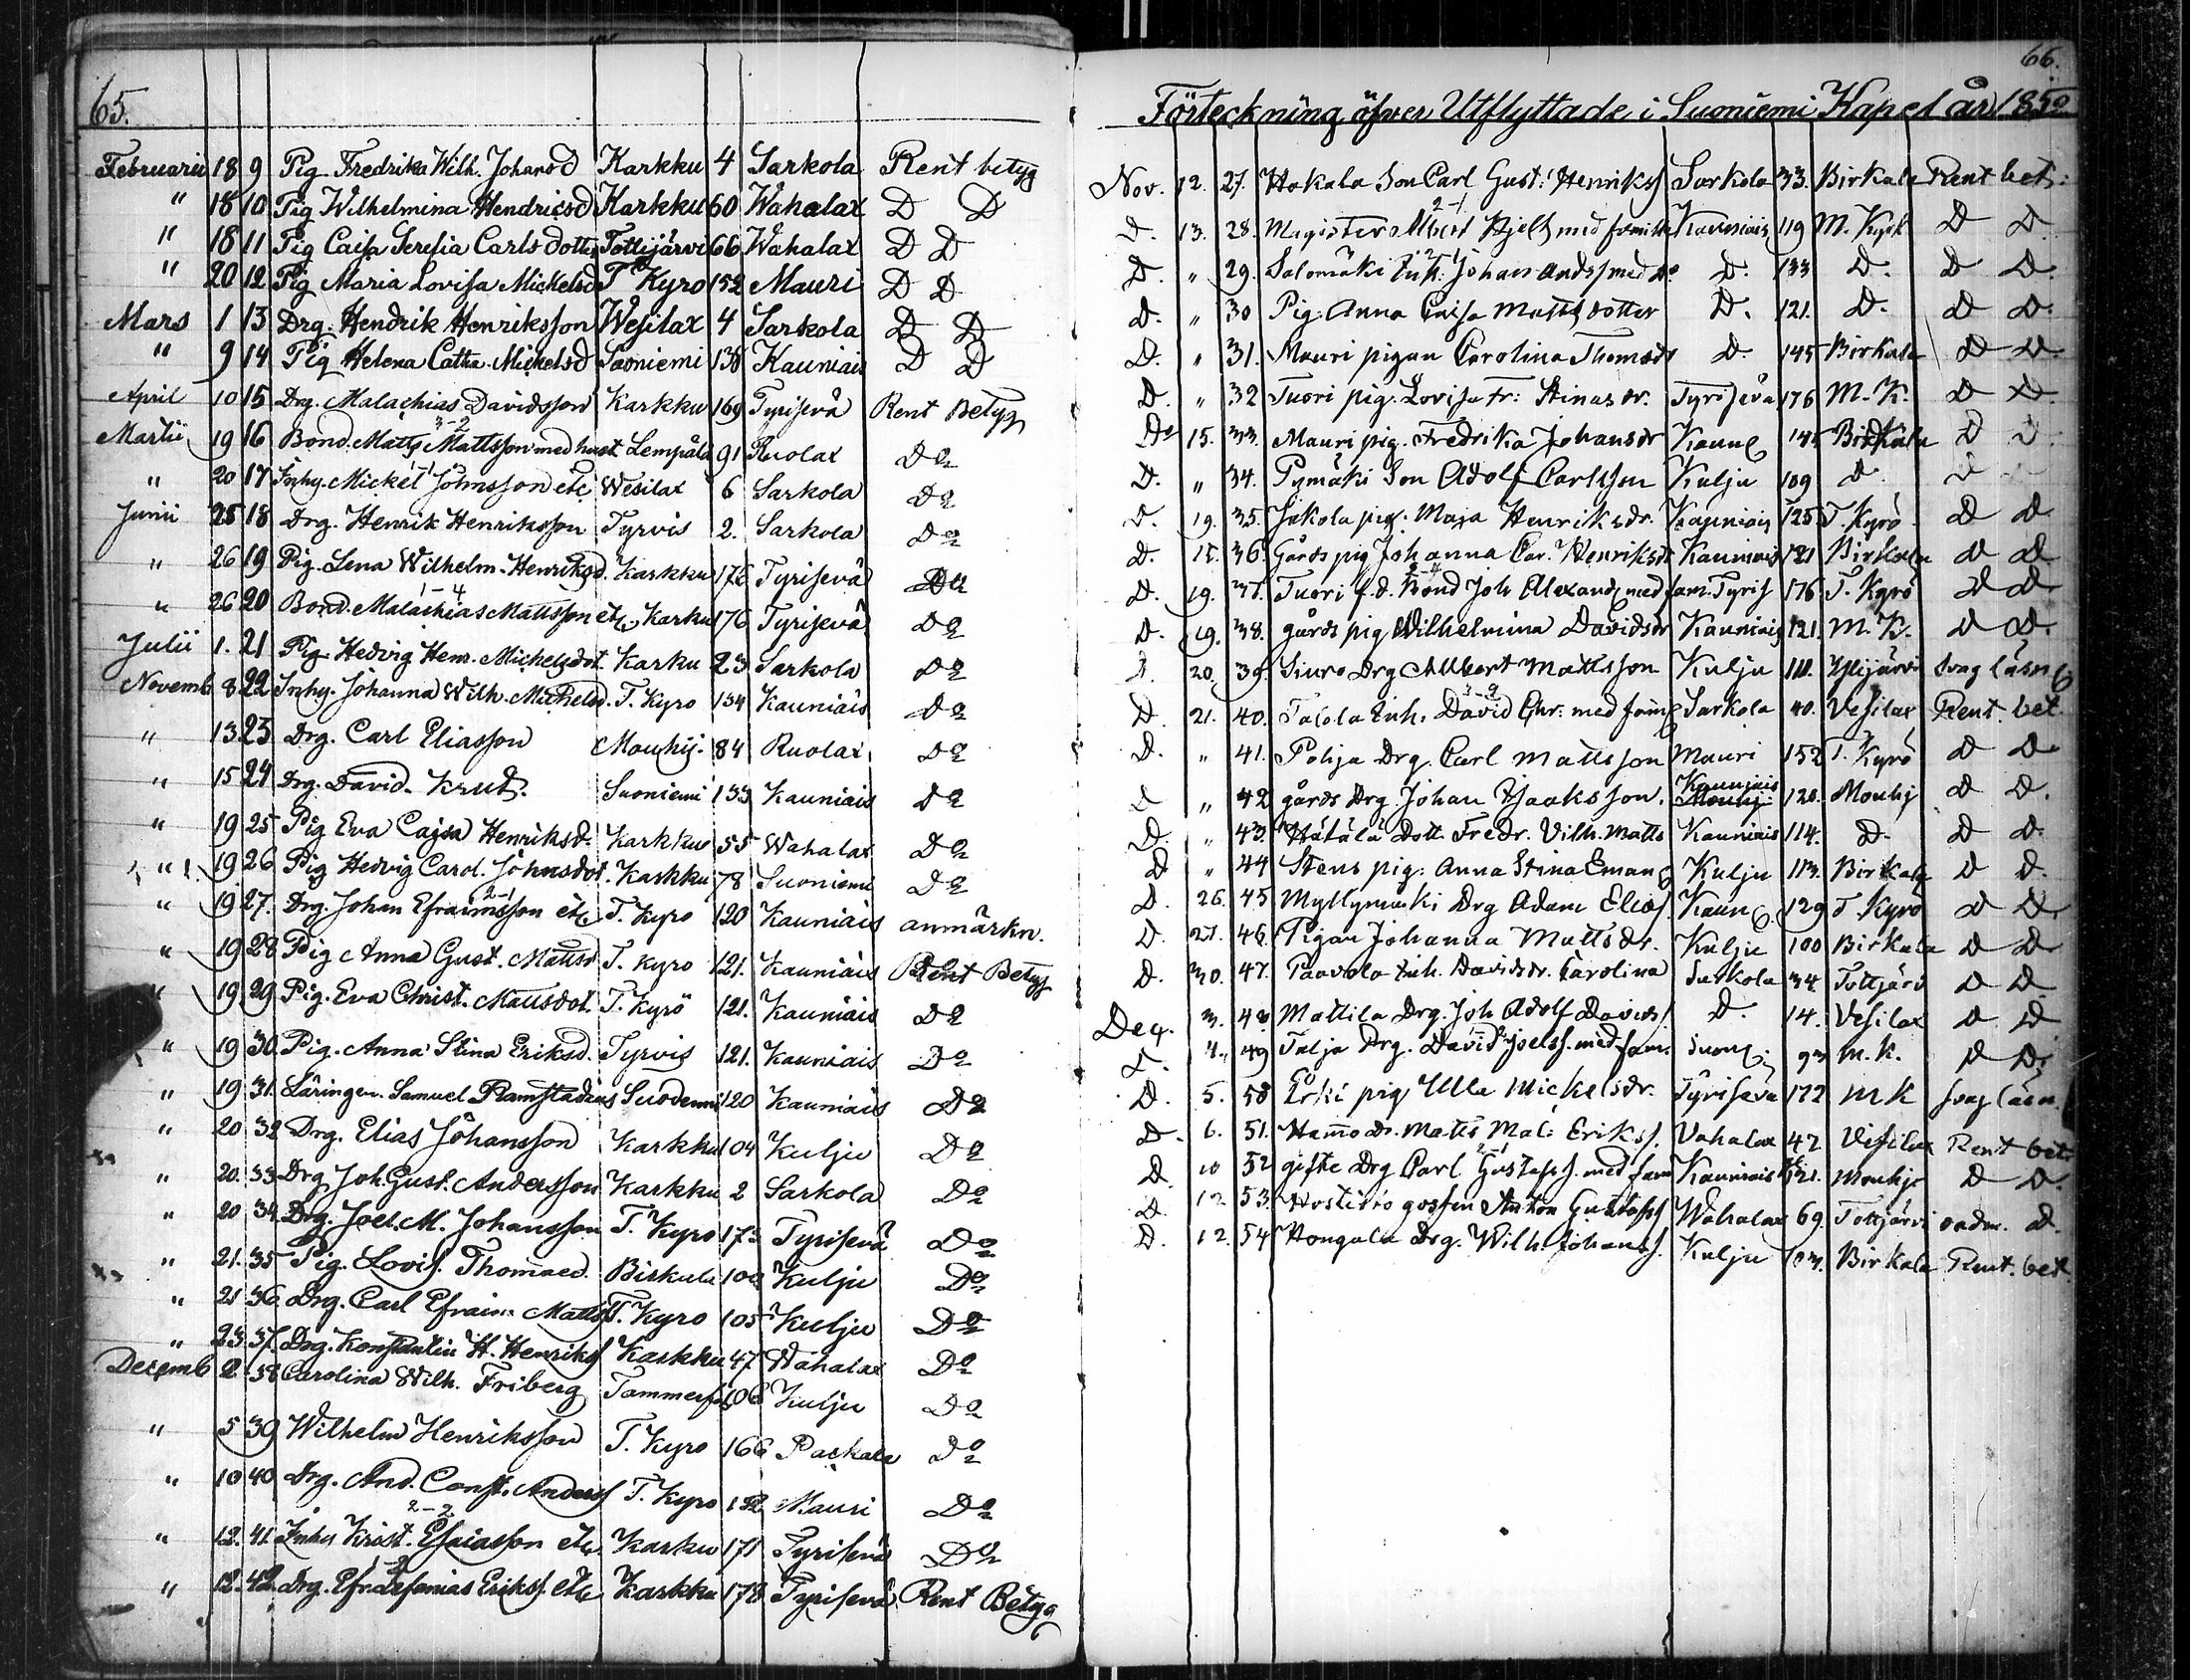 65.
Februarii 18 9 Pig. Fredrika Wilh. Johansd Karkku 4 Sarkola Rent betyg
" 18 10 Pig Wilhelmina Hendricsd Karkku 60 Wahalax D D
" 18 11 Pig Caisa Serefia Carlsdotter Tottijärvi 66 Wahalax D D
" 20 12 Pig Maria Lovisa Mickelsd T Kyro 152 Mauri D D
Mars 1 13 Drg. Hendrik Henriksson Wesilax 4 Sarkola D D
" 9 14 Pig Helena Catha. Mickelsd Suoniemi 138 Kauniais D D
April 10 15 Drg. Malachias Davidsson Karkku 169 Tyrisevä Rent Betyg
Martii 19 16 Bond. Matts Mattsson med hust. Lempälä 91 Ruolax Do
3-2
" 20 17 Inhy. Mickel Johnsson etc Wesilax 6 Sarkola Do
1-1
Junii 25 18 Drg. Henrik Henriksson Tyrvis 2. Sarkola Do
" 26 19 Pig. Lena Wilhelm. Henriksd. Karkku 176 Tyrisevä Do
" 26 20 Bond. Malachias Mattsson etc. Karku 176 Tyrisevä Do
1-4
Julii 1. 21 Pig Hedvig Hen. Michelsdot. Karku 23 Sarkola Do
Novemb 8 22 Inhy. Johanna Wilh. Michelsd. T. Kyro 134 Kauniais Do
" 13 23 Drg. Carl Eliasson Mouhij. 84 Ruolax Do
" 15 24 Drg. David Krut. Suoniemi 133 Kauniais Do
" 19 25 Pig Eva Cajsa Henriksd. Karkku 55 Wahalax Do
" 19 26 Pig Hedvig Carol. Johnsdot. Karkku 78 Suoniemi Do
" 19 27. Drg. Johan Efraimsson etc T. Kyro 120 Kauniais anmärkn.
2-1
" 19 28 Pig Anna Gust. Mattsd T. Kyro 121. Kauniais Rent Betyg
" 19 29 Pig. Eva Christ. Mattsdot. T. Kyrö 121. Kauniais Do
" 19 30 Pig. Anna Stina Eriksd. Tyrvis 121. Kauniais Do
" 19 31. Läringen. Samuel Ramstadius 120 Kauniais Do
" 20 32 Drg. Elias Johansson Karkku 104 Kulju Do
" 20. 33 Drg Joh. Gust. Andersson Karkku 2 Sarkola Do
" 20 34 Drg. Joel. M. Johansson T. Kyro 173 Tyrisevä Do
" 21. 35 Pig. Lovis. Thomaed. Birkala Kulju Do
" 21 36 Drg. Carl Efraim Matts T. Kyro 105 Kulju Do
" 23 37. Drg. Konstantin H. Henriks Karkku 47 Wahalax Do
Decemb 2 38 Carolina Wilh. Friberg Tammerfors 106 Kulju Do
" 5 39 Wilhelm Henriksson T. Kyro 166 Do
" 10 40 Drg. And. Const. Anderss T. Kyro 152 Mauri Do
" 12. 41. Inhy Krist. Esaiasson etc Karku 171 Tyrisevä Do
2-2
" 12. 42. Drg. Efr. Eriks. etc Karkku 178 Tyrisevä Rent Betyg
66.
Förteckning öfver Utflyttade i Suoniemi Kapel år 1852
Nov. 12. 27. Hakala Son Carl Gust. Henrikss Sarkola 33. Birkala Rent bet:
D. 13. 28. Magister Albert Hjelt med familie Kauniais 119 M. Kyrk D D
2-1
D. " 29. Salomäki Inh. Johan Andss med do D. 133 D. D D.
D. " 30 Pig. Anna Caisa Mattsdotter D. 121. D. D D.
D. " 31. Mauri pigan Carolina Thomadr D. 145 Birkala D D.
D. " 32 Tuori pig. Lovisa Fr: Stinas dr. Tyrisevä 176 M. K. D D.
Do 15. 33. Mauri pig. Fredrika Johansdr Kaun 145 Birkala D D.
D. " 34. Pymäki Son Adolf Carlsson Kulju 109 D. D
D. 19. 35. Jakola pig. Maja Henriksdr. Kauniais 125 T. Kyrö D D.
D. 15. 36. Gårds pig Johanna Car. Henriksdr Kauniais 121 Birkala D D
D. 19. 37. Tuori f.d. Bond Joh Alexand med fam. Tyris 176 T. Kyrö D D
2-4
D. 19. 38. gårds pig Wilhelmina Davidsdr Kauniais 121. M. K. D D.
D. 20. 39. Siuro Drg Albert Mattsson Kulju 111. Ylöjärvi Svag läsn
D. 21. 40. Talola Inh. David Chr. med fam Sarkola 40. Vesilax Rent. bet.
3-2
D. " 41. Pohja Drg. Carl Mattsson Mauri 152 T. Kyrö D D
D " 42 gårds Drg. Johan Isaaksson. Kauniais 120. Mouhij D D.
D. " 43. Hätälä Dott Fredr. Vilh. Matts Kauniais 114. D. D D.
D " 44 Stens pig. Anna Stina Eman Kulju 113. Birkala D D.
D. 26. 45 Myllymäki Drg Adam Elias. Kaun 129 T. Kyrö D D
D. 27. 46. Pigan Johanna Mattsdr. Kulju 100 Birkala D D
D. 30. 47. Paavola Inh. Davidsdr. Carolina Sarkola 34. Tottjärvi D D.
Dec. 3. 48 Mattila Drg. Joh Adolf Davids. D. 14. Vesilax D. D
D. 4. 49 Talja Drg. David Joelss. med fam. Suon 93 M. K. D D.
D. 5. 50 Erki pig Ulla Mickelsdr. Tyrisevä 172 M K svag läsn.
D. 6. 51. Hammo dr. Matts Mal: Erikss. Vahalax 42 Vesilax Rent bet.
D. 10 52 gifte Drg Carl Gustafs. med fam Kauniais 121. Mouhij D D.
D. 12 53. gossen Anton Gustafss Wahalax 69. Tottjärvi D.
D. 12. 54 Hongala Drg. Wilh. Johanss. Kulju 103. Birkala Rent. bet.